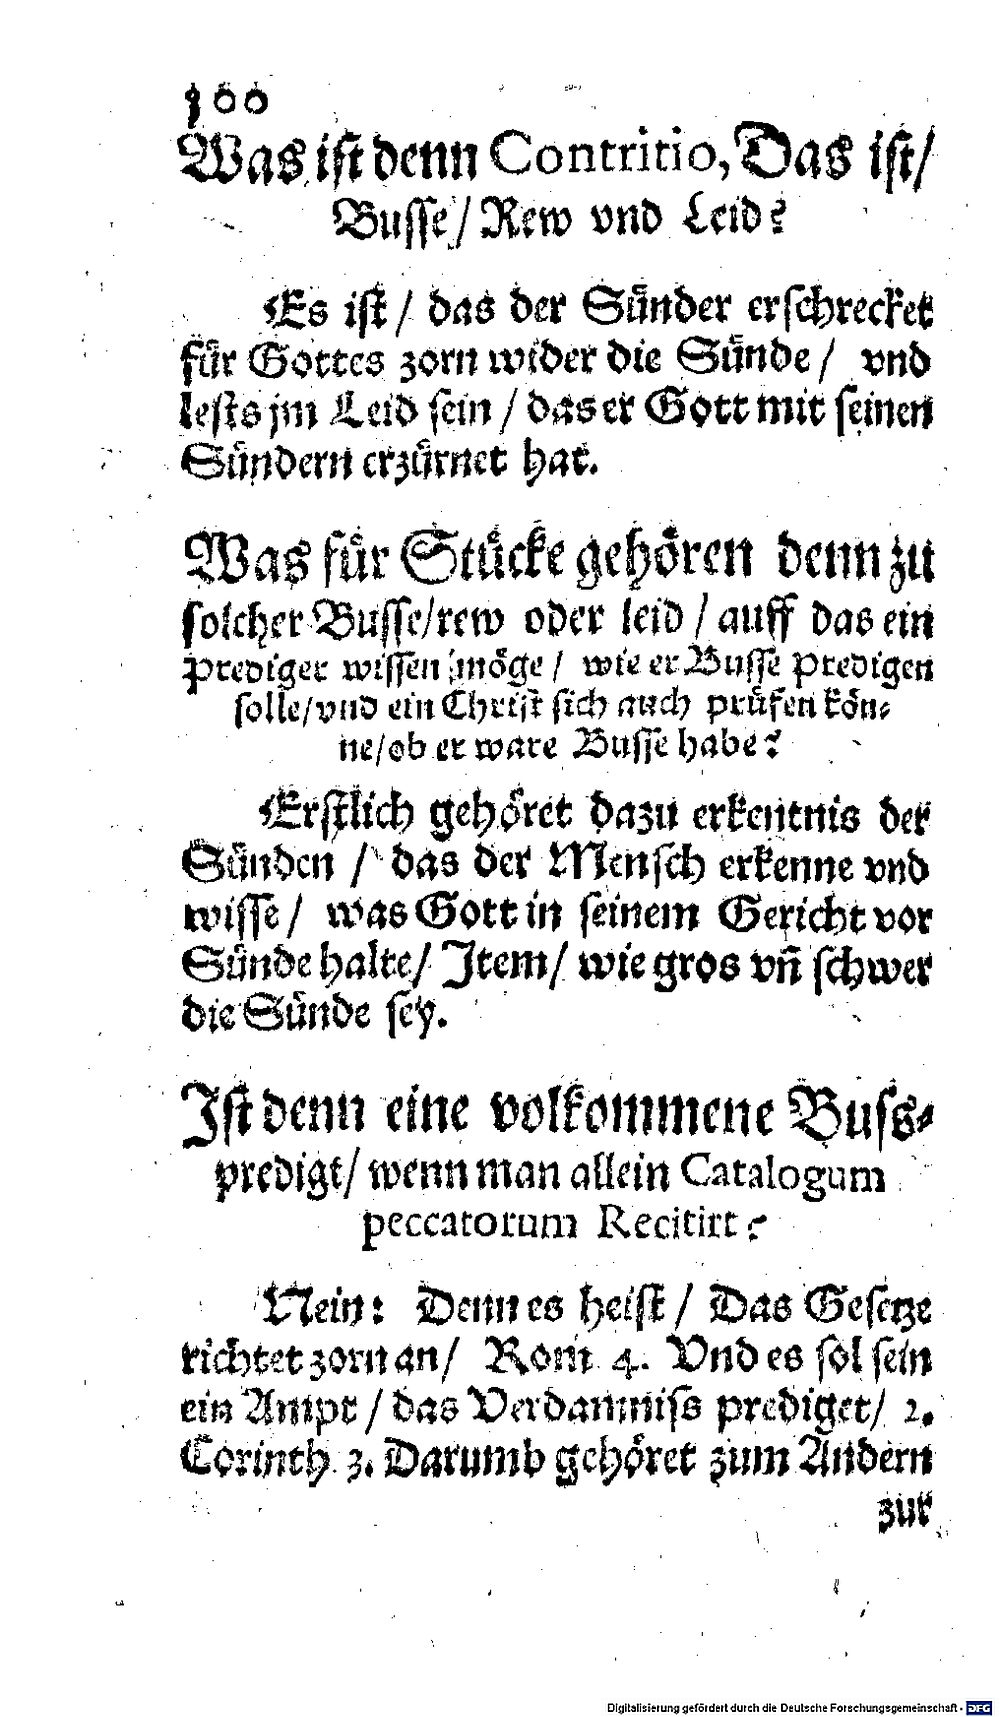 100
Was ist denn Contritio, Das ist/
Busse/ Rew vnd Leid?
Es ist / das der Sünder erschrecket
für Gottes zorn wider die Sünde / vnd
lests jm Leid sein / das er Gott mit seinen
Sündern erzürnet hat.
Was für Stücke gehören denn zu
solcher Busse/rew oder leid / auff das ein
Prediger wissen möge / wie er Busse Predigen
solle/vnd ein Christ sich auch prüfen kön-
ne/ob er ware Busse habe?
Erstlich gehöret dazu erkentnis der
Sünden / das der Mensch erkenne vnd
wisse / was Gott in seinem Gericht vor
Sünde halte/ Item/ wie gros vñ schwer
die Sünde sey.
Ist denn eine volkommene Buss-
predigt/ wenn man allein Catalogum
peccatorum Recitirt?
Nein: Denn es heist / Das Gesetze
richtet zorn an/ Rom 4. Vnd es sol sein
ein Ampt / das Verdamniss prediget/ 2.
Corinth 3. Darumb gehöret zum Andern
zur
Digitalisierung gefördert durch die Deutsche Forschungsgemeinschaft - DFG